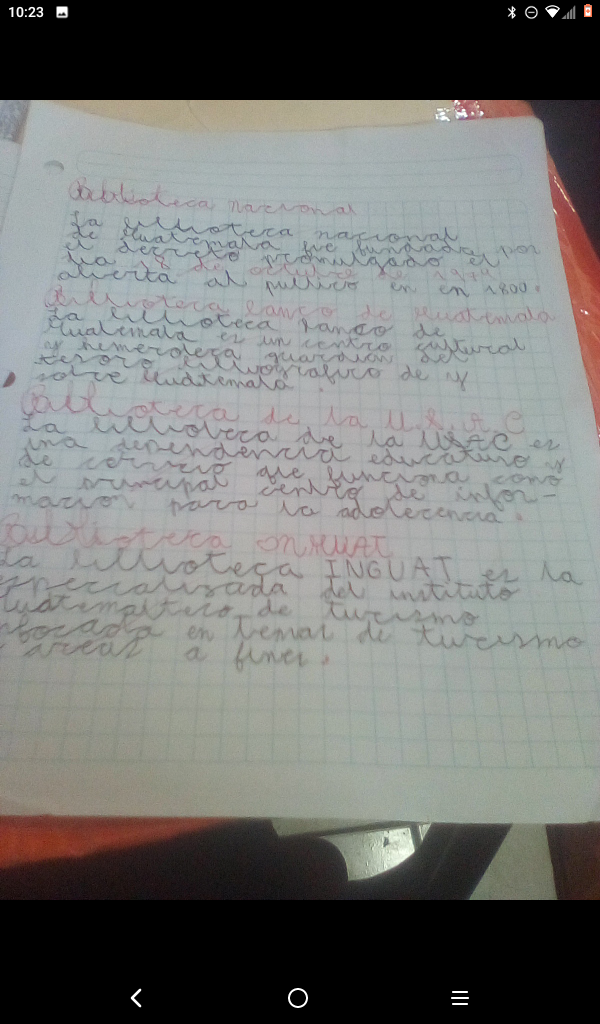 10:23
Biblioteca nacional
La biblioteca nacional
de Guatemala fue fundada por
el decreto promulgado el
dia 18 de octubre de 1979
abierta al publico en en 1800.
Biblioteca banco de Guatemala
La biblioteca banco de
Guatemala es un centro cultural
y hemeroteca guardian del
tesoro bibliografico de y
sobre Guatemala.
Biblioteca de la U.S.A.C
La biblioteca de la USAC es
una dependencia educativo y
de servicio que funciona como
el principal centro de infor-
macion para la adolecencia.
Biblioteca INGUAT
La biblioteca INGUAT es la
especializada del instituto
Guatemalteco de turismo
abocada en temas de turismo
areas a fines.